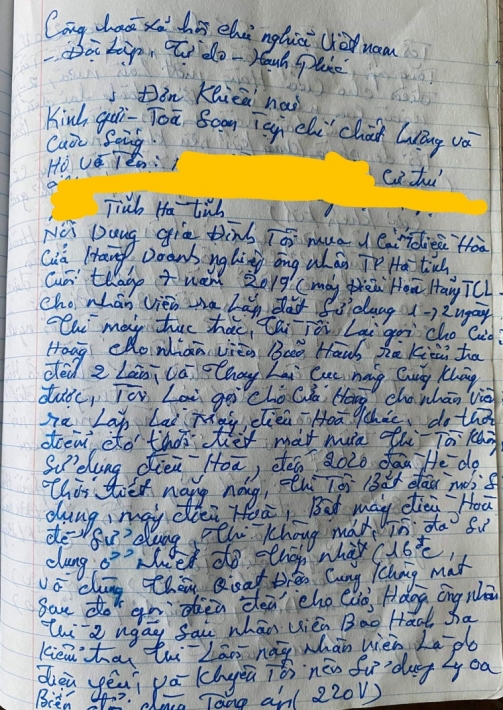 Cộng hoà xã hội chủ nghĩa việt nam
- Độc lập, Tự do - Hạnh phúc
Đơn Khiếu nại
Kính gửi - Toà Soạn Tạp chí chất lượng và
Cuộc Sống.
Họ và Tên: Cư trú
Tỉnh Hà Tĩnh
Nội Dung gia Đình Tôi mua 1 Cái điều Hòa
Của Hàng Doanh nghiệp ông nhân TP Hà tĩnh
Cuối tháng 7 năm 2019 (máy Điều Hòa Hãng TCL
cho nhân viên ra Lắp đặt Sử dụng 1 → 2 ngày
Thì máy trục trặc, Thì Tôi Lại gọi cho Cửa
Hàng cho nhân viên Bảo Hành ra Kiểm tra
đến 2 Lần, và Thay Lại Cục nóng Cũng Không
được, Tôi Lại gọi cho Cửa Hàng cho nhân viên
ra Lắp Lại máy điều Hoà Khác, do thời
điểm đó thời tiết mát mưa Thì Tôi Không
Sử dụng điều Hòa, đến 2020 đầu Hè do
Thời tiết nắng nóng, Thì Tôi Bắt đầu mới S
dụng máy điều Hoà, Bật máy điều Hoà
để Sử dụng Thì Không mát, Tôi đã Sử
dụng ở nhiệt độ Thấp nhất (16°c,
và dùng Thêm Quạt Điện Cũng Không mát
Sau đó gọi điện đến cho Cửa Hàng ông nhân
Thì 2 ngày Sau nhân viên Bảo Hành ra
Kiểm tra, Thì Lần này nhân viên Là do
điện yếu, và Khuyên Tôi nên Sử dụng Ly oa
Biến để dùng Tăng áp (220V)